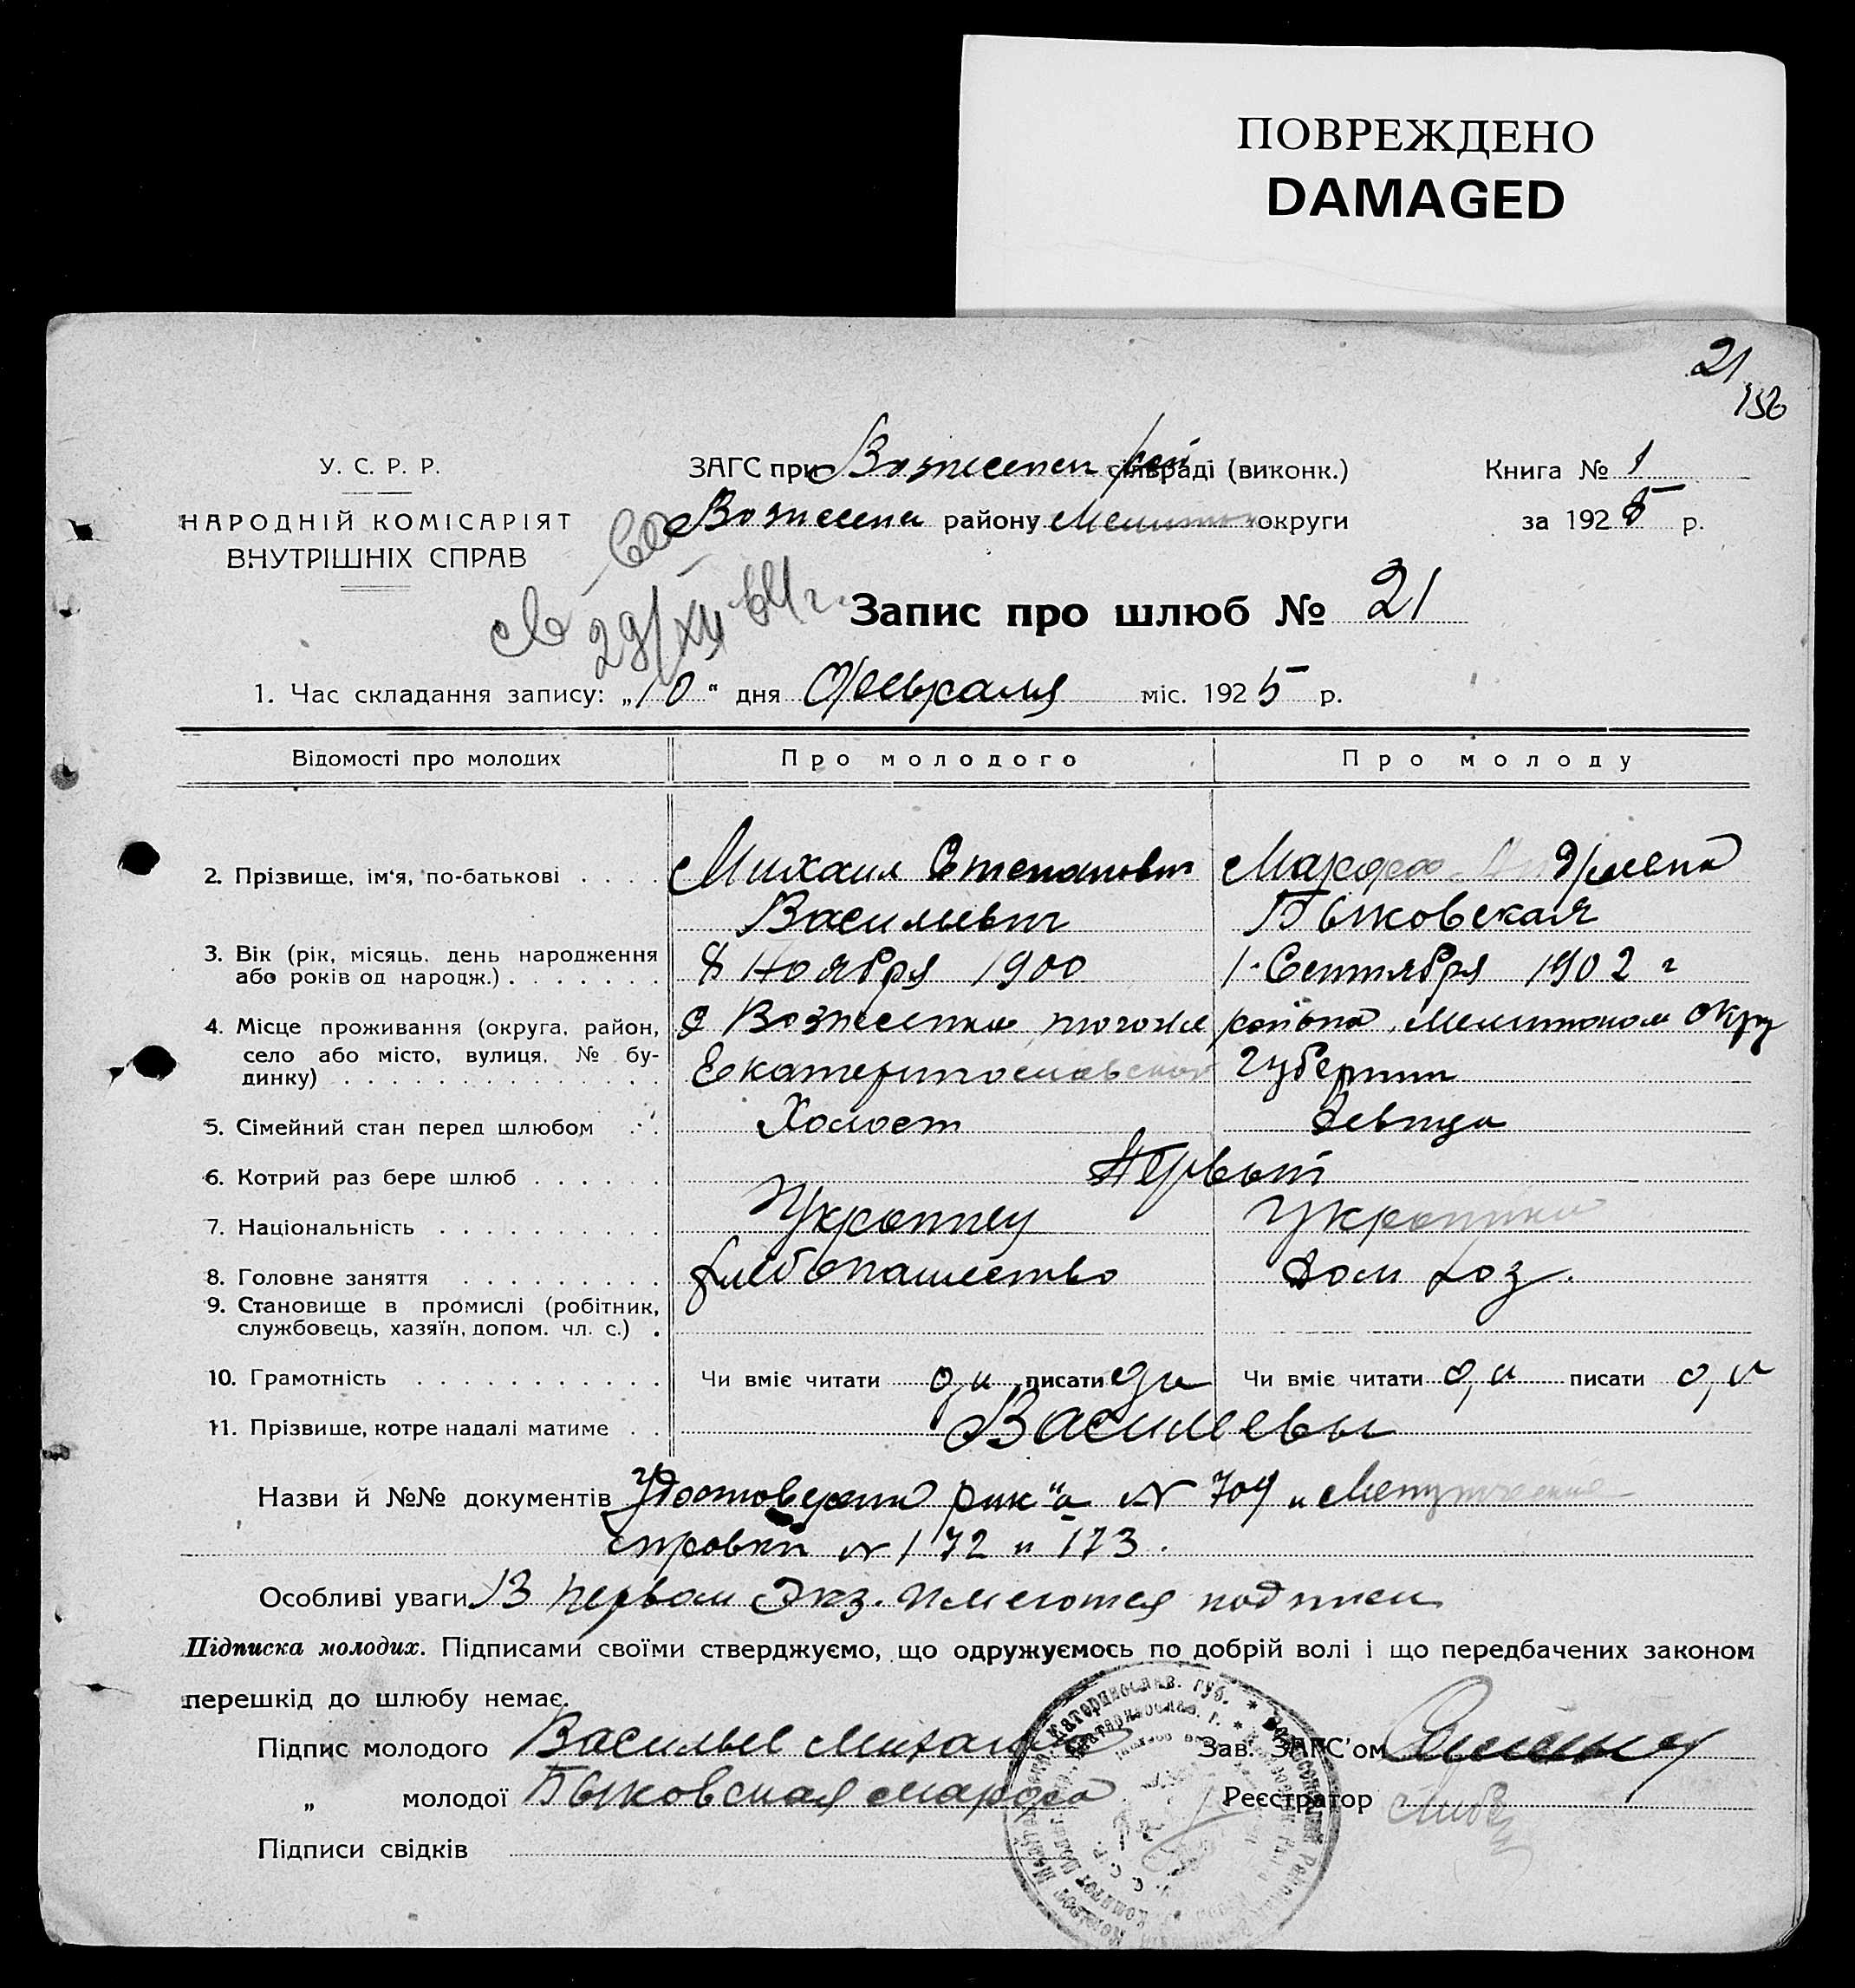 ПОВРЕЖДЕНО
DAMAGED
21
156
У. С. Р. Р.
НАРОДНІЙ КОМІСАРІЯТ
ВНУТРІШНІХ СПРАВ
ЗАГС при Вознесен рай сільраді (виконк.)
Вознесен району Мелитоп округи
Книга № 1
за 1925 р.
29/XII 64 г.
Запис про шлюб № 21
1. Час складання запису: „10" дня Февраля міс. 1925 р.
Відомості про молодих Про молодого Про молоду
2. Прізвище, ім'я, по-батькові Михаил Степанович Марфа
Васильевич Быковская
3. Вік (рік, місяць, день народження 8 Ноября 1900 1 Сентября 1902 г
або років од народж.)
4. Місце проживання (округа, район, С Вознесенка того же района, Мелитопол Окру
село або місто, вулиця, № бу- Екатеринославской Губернии
динку)
5. Сімейний стан перед шлюбом Холост девица
6. Котрий раз бере шлюб Первый
7. Національність Украинец Украинка
8. Головне заняття хлебопашество Дом хоз.
9. Становище в промислі (робітник,
службовець, хазяїн, допом. чл. с.)
10. Грамотність Чи вміє читати да писати да Чи вміє читати да писати да
11. Прізвище, котре надалі матиме Васильевы
Назви й №№ документів Удостоверения рик"а № 709 и
справки № 172 и 173.
Особливі уваги В первом Экз. имеются подписи
Підписка молодих. Підписами своїми стверджуємо, що одружуємось по добрій волі і що передбачених законом
перешкід до шлюбу немає.
Підпис молодого Васильев Михаил Зав. ЗАГС'ом
„ молодої Быковская Марфа Реєстратор
Підписи свідків